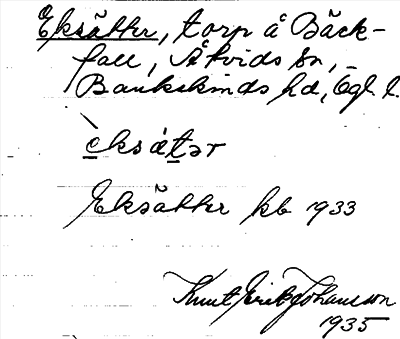 Eksätter, torp å Bäck-
fall, Åtvids sn,
Bankekinds hd, Ögl. l.
èksátər
Eksätter kb 1933
Knut Erik Johansson
1935